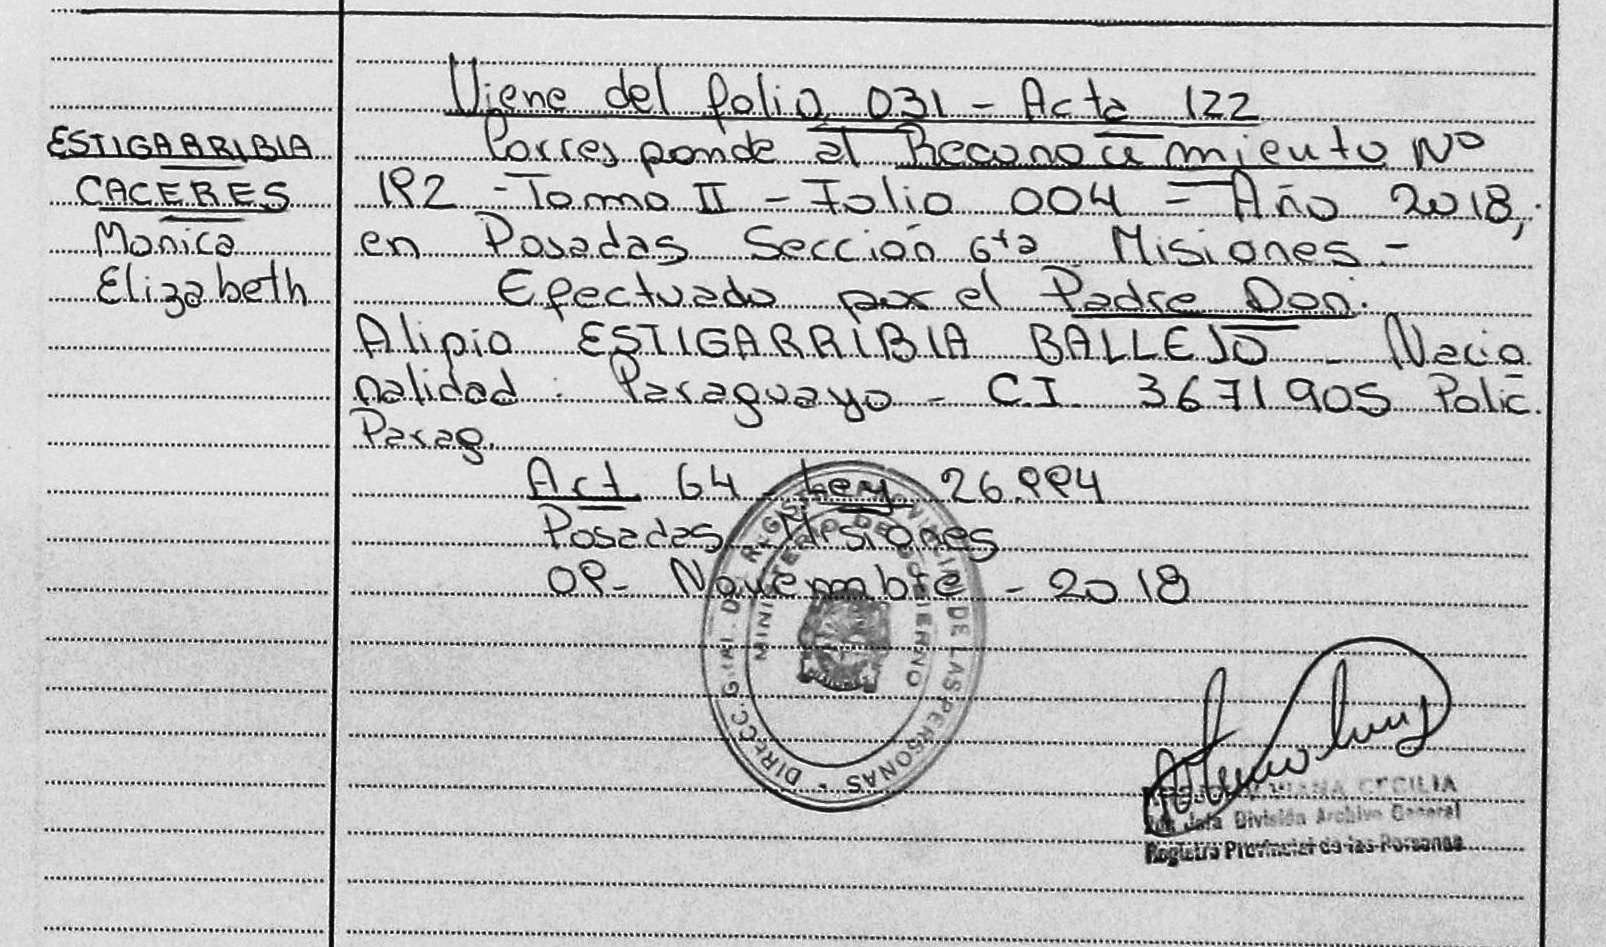 Viene del folio 031 - Acta 122
ESTIGARRIBIA
CACERES
Monica
Elizabeth
Corresponde al Reconocimiento Nº
192 - Tomo II - Folio 004 - Año 2018,
en Posadas Sección 6ta Misiones.-
Efectuado por el Padre Don:
Alipio ESTIGARRIBIA BALLEJO - Nacio
nalidad: Paraguayo - C.I. 3671905 Polic.
Parag.
Art 64 - Ley 26.994
Posadas, Misiones
09 - Novembre - 2018
DIRECC. GRAL. DEL REGISTRO PROVINCIAL DE LAS PERSONAS
MINISTERIO DE GOBIERNO
CECILIA
Jefa División Archivo General
Registro Provincial de las Personas